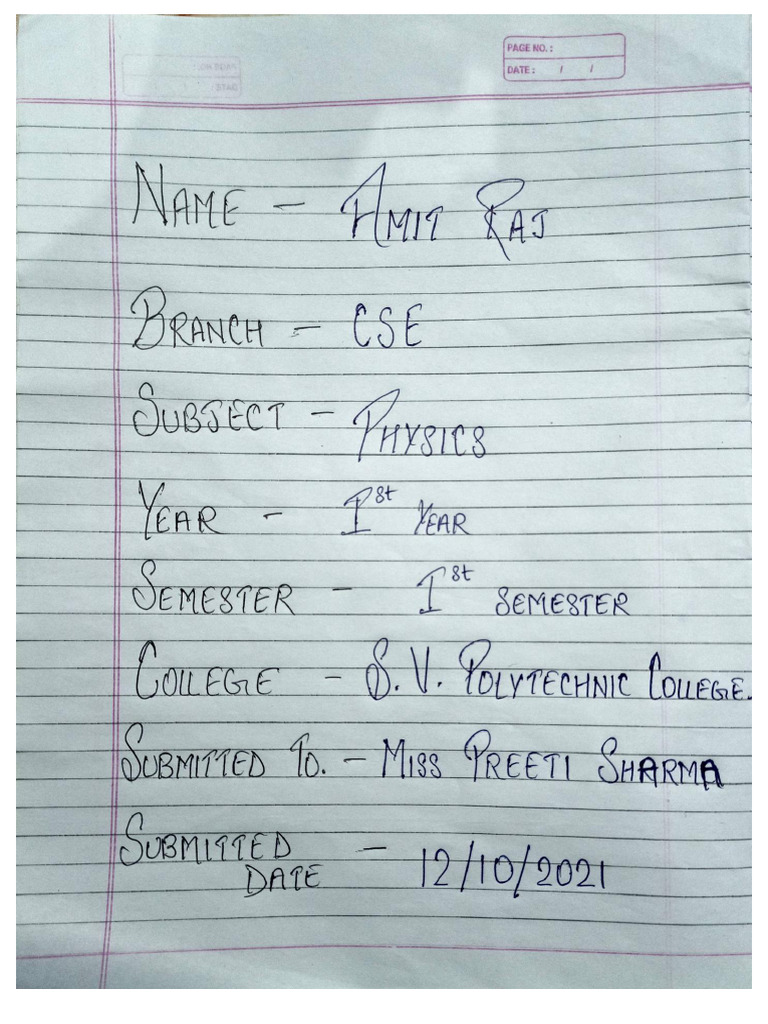 PAGE NO.:
DATE: / /
NAME - AMIT RAJ
BRANCH - CSE
SUBJECT - PHYSICS
YEAR - Ist YEAR
SEMESTER - Ist SEMESTER
COLLEGE - S.V. POLYTECHNIC COLLEGE.
SUBMITTED TO. - MISS PREETI SHARMA
SUBMITTED -
DATE 12/10/2021